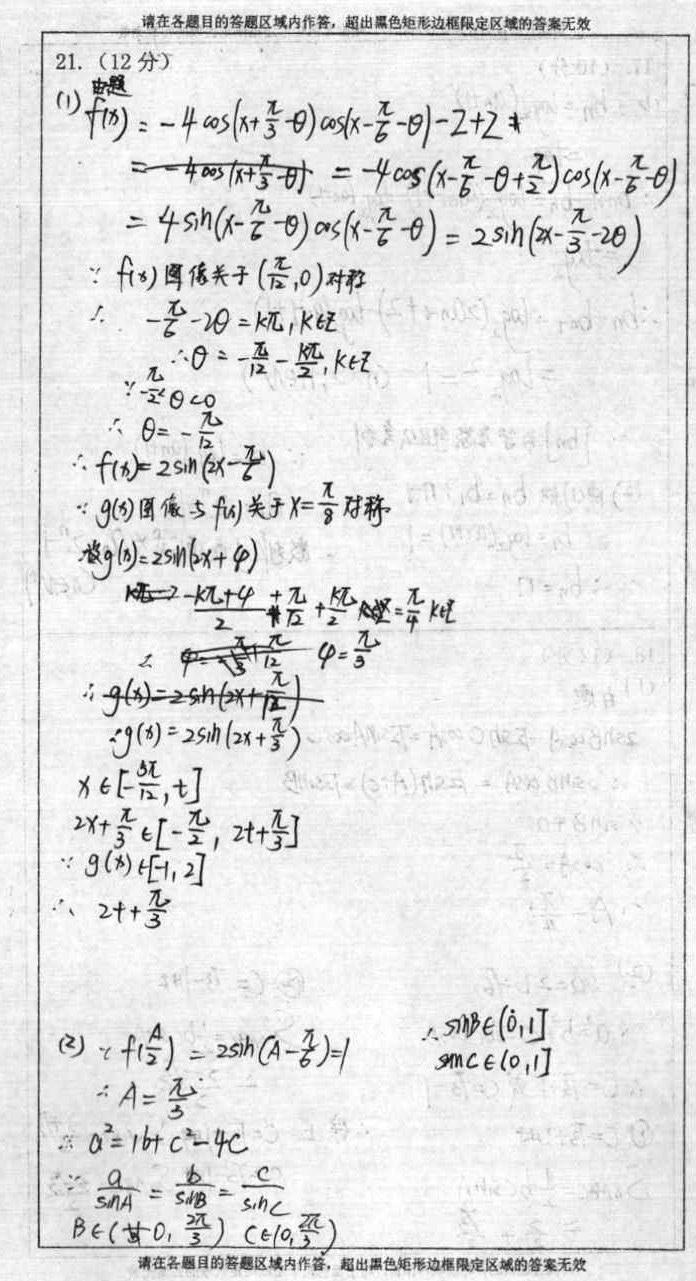 请在各题目的答题区域内作答，超出黑色矩形边框限定区域的答案无效
21.（12分）
由题
(1) f(x) = -4cos(x+π/3-θ)cos(x-π/6-θ)-2+2
= -4cos(x+π/3-θ) = -4cos(x-π/6-θ+π/2)cos(x-π/6-θ)
= 4sin(x-π/6-θ)cos(x-π/6-θ) = 2sin(2x-π/3-2θ)
∵ f(x)图像关于(π/12,0)对称
∴ -π/6-2θ=kπ,k∈Z
∴θ = -π/12-kπ/2,k∈Z
∵-π/2<θ<0
∴ θ=-π/12
∴ f(x)=2sin(2x-π/6)
∵ g(x)图像与f(x)关于x=π/8对称
设g(x)=2sin(2x+φ)
-kπ+φ/2 + π/12 + kπ/2 = π/4 k∈Z
φ=π/3
∴ g(x)=2sin(2x+π/12)
∴g(x)=2sin(2x+π/3)
x∈[-5π/12,t]
2x+π/3∈[-π/2, 2t+π/3]
∵ g(x)∈[-1,2]
∴ 2t+π/3
(2) ∵ f(A/2) = 2sin(A-π/6)=1
∴ A=π/3
∴ a²=16+c²-4c
∵ a/sinA = b/sinB = c/sinC
B∈(0, 2π/3) C∈(0,2π/3)
∴ sinB∈(0,1]
sinC∈(0,1]
请在各题目的答题区域内作答，超出黑色矩形边框限定区域的答案无效